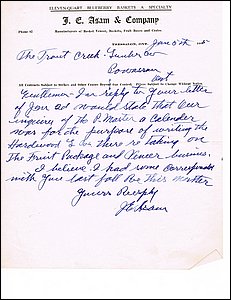 ELEVEN-QUART BLUEBERRY BASKETS A SPECIALTY
J. E. Asam & Company
Phone 42 Manufacturers of Basket Veneer, Baskets, Fruit Boxes and Crates
Jan 5th
The Trout Creek Lumber Co
Powassan
Ont
All Contracts Subject to Strikes and Other Causes Beyond Our Control. Prices Subject to Change Without Notice
Gentlemen In reply to your letter
of Jan 2nd would state that our
inquiry of the P. Master a calender
was for the purpose of writing the
Hardwood & Co there re taking on
The Fruit Package and Veneer business.
I believe I had some correspondence
with you last fall Re this matter
Yours Resply
J E Asam